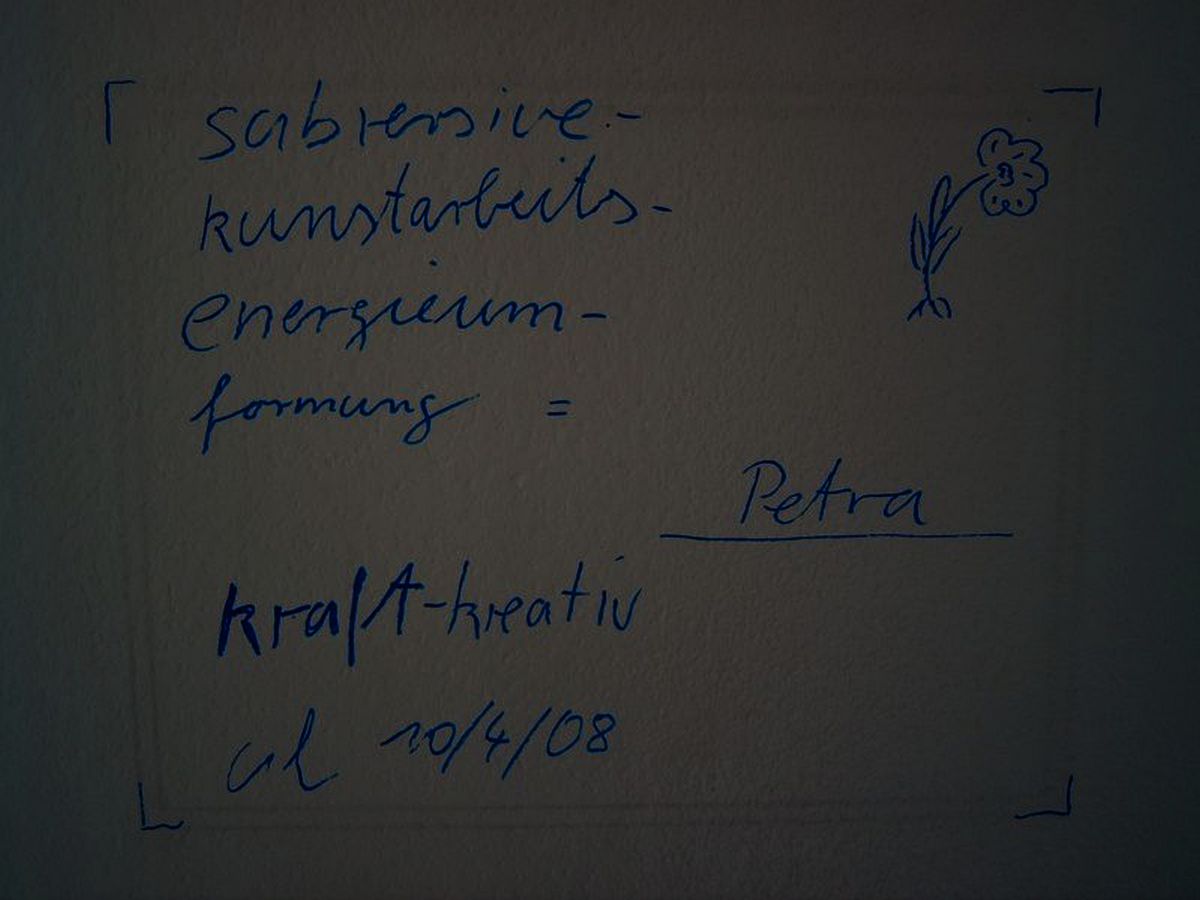 sabversive-
kunstarbeits-
energieum-
formung =
Petra
kraft-kreativ
al 10/4/08